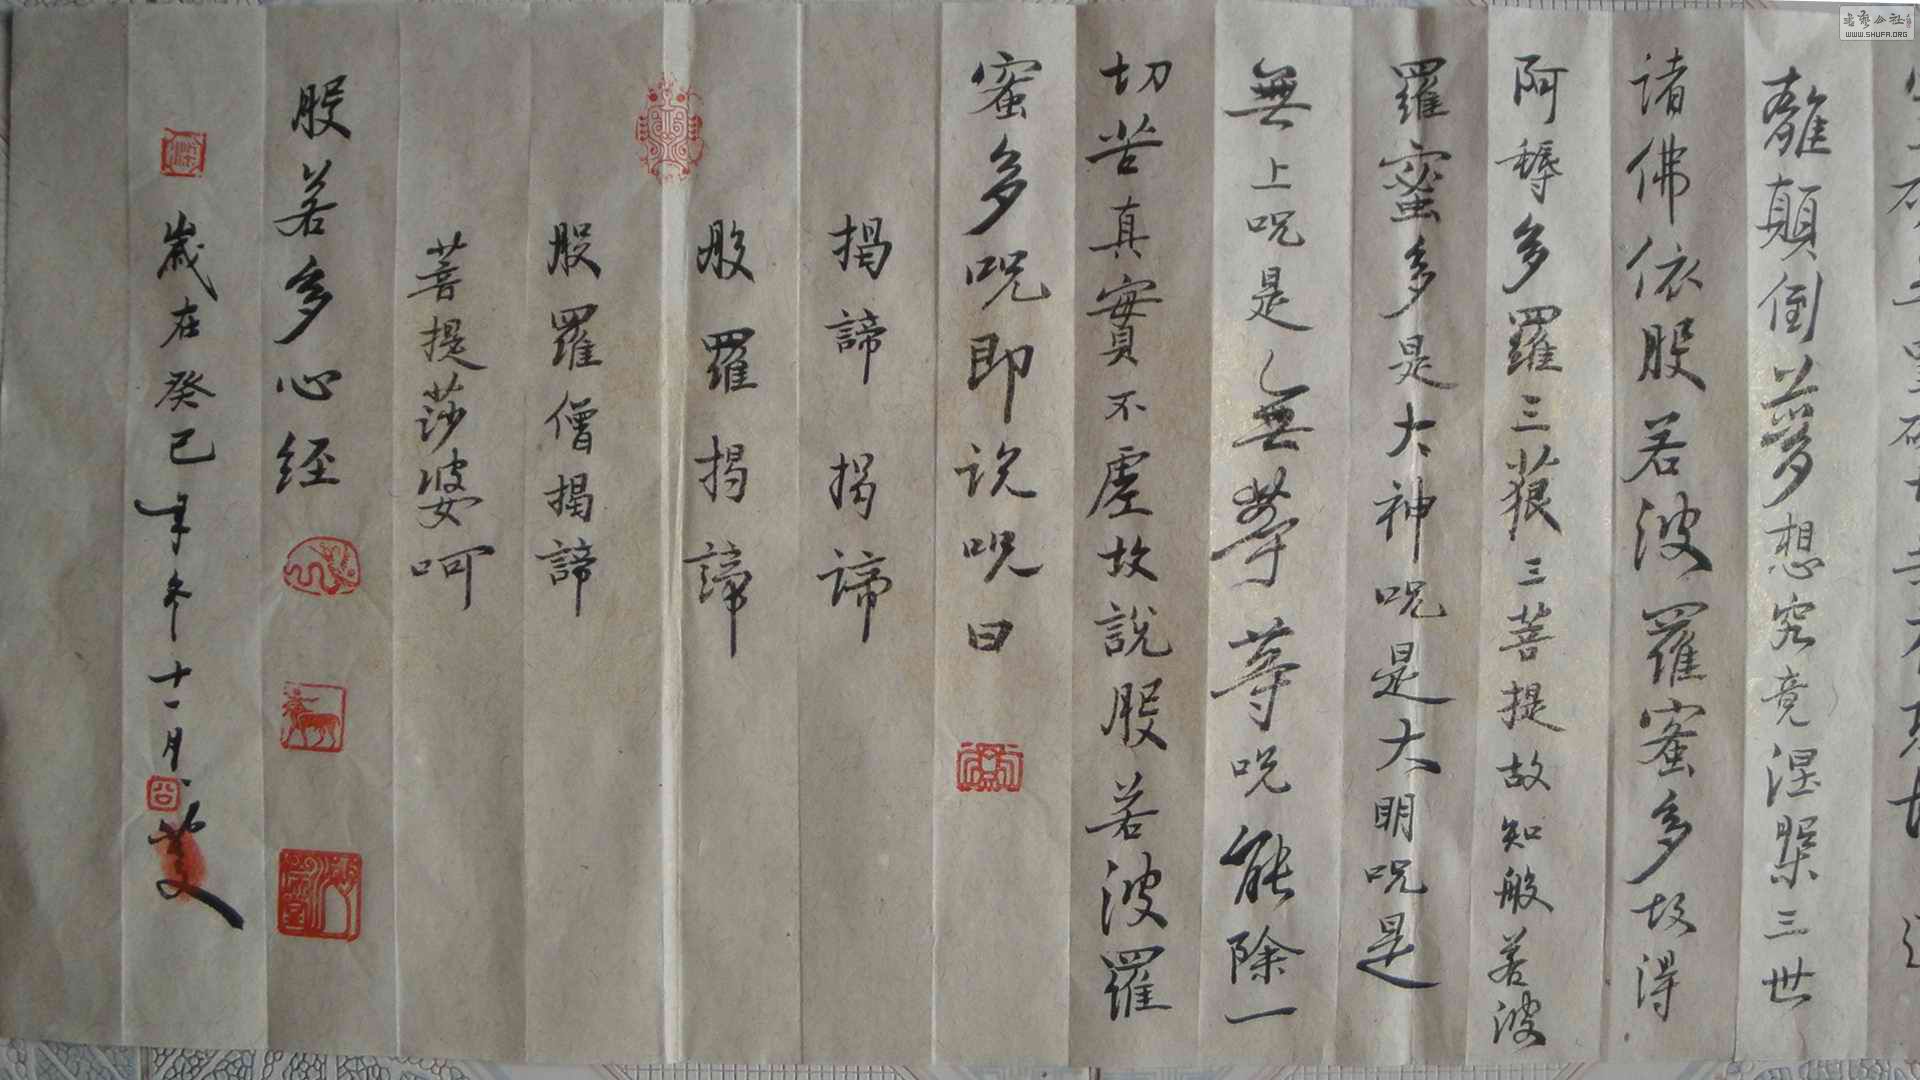 離顛倒夢想究竟涅槃三世
諸佛依股若波羅蜜多故得
阿耨多羅三藐三菩提故知般若波
羅蜜多是大神呪是大明呪是
無上呪是無等等呪能除一
切苦真實不虛故說股若波羅
蜜多呪即说呪曰
揭諦揭諦
般羅揭諦
股羅僧揭諦
菩提莎婆呵
股若多心経
歲在癸巳年冬十一月
書藝公社
WWW.SHUFA.ORG